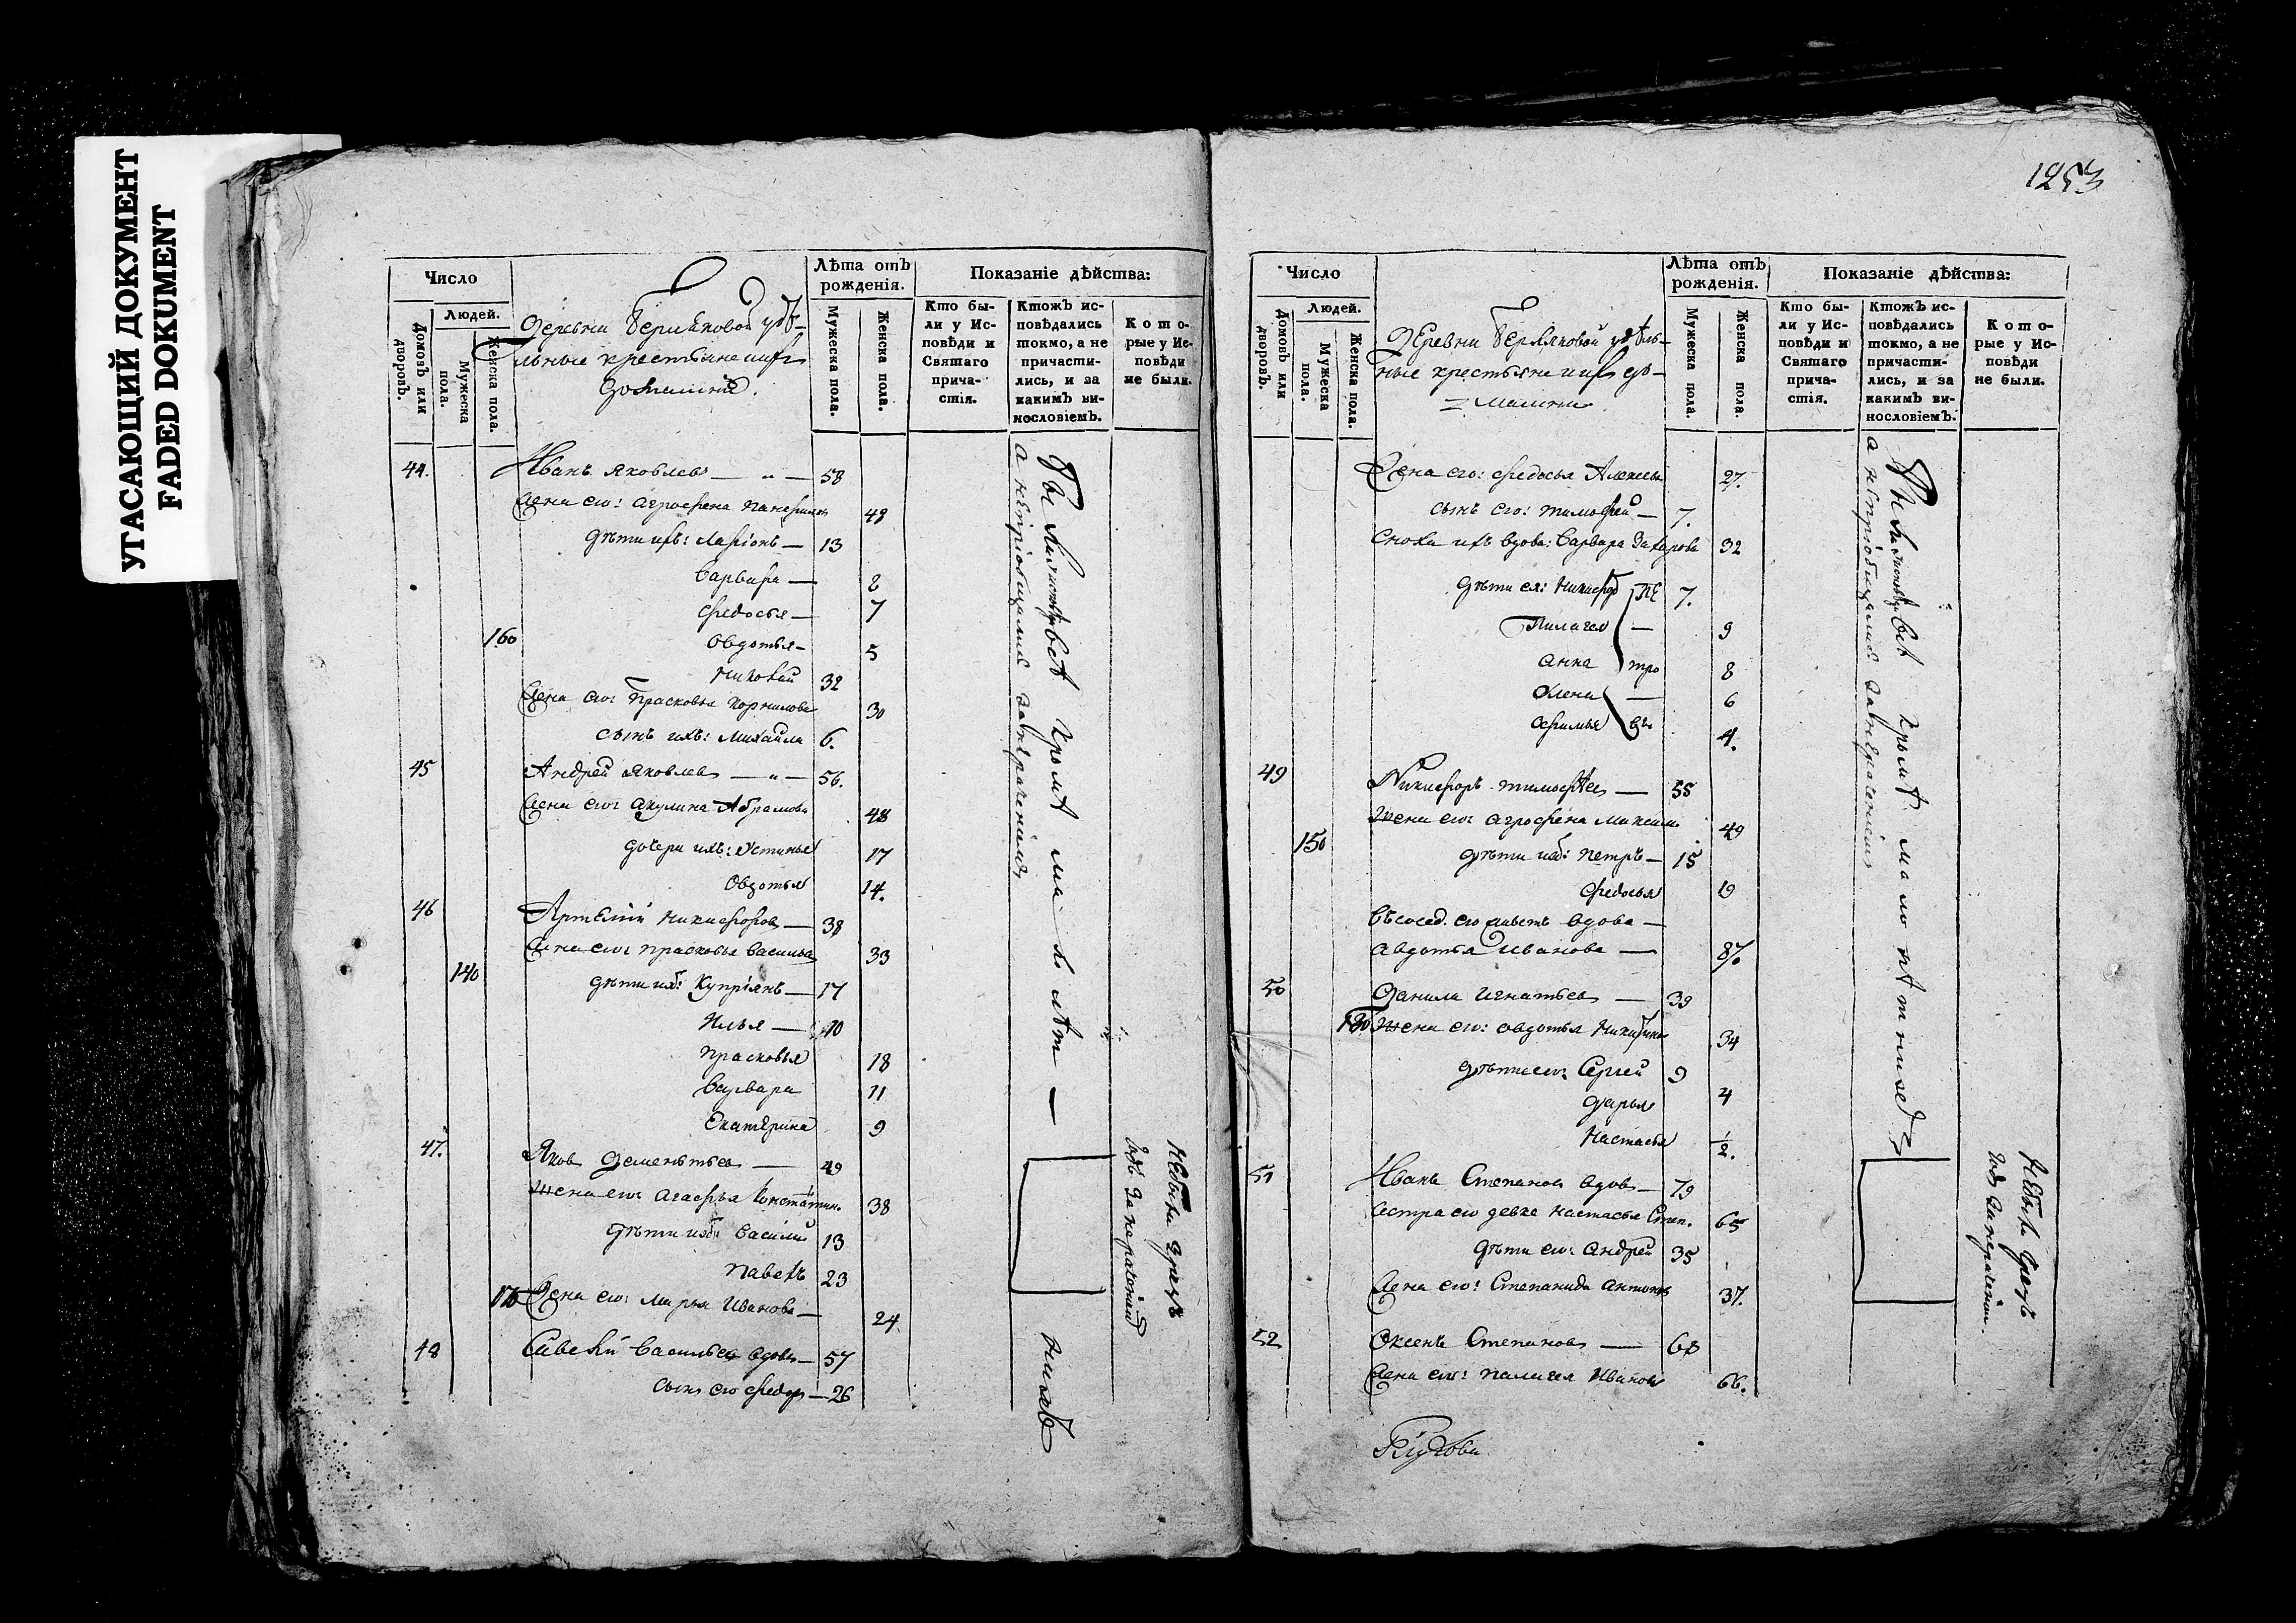 УГАСАЮЩИЙ ДОКУМЕНТ
FADED DOKUMENT
Число
Людей.
Домовъ или дворовъ.
Мужеска пола.
Женска пола.
Деревни Берляковой удѣ-
льные крестьяне и ихъ
домашнiе.
Лѣта отъ рожденія.
Мужеска пола.
Женска пола.
Показаніе дѣйства:
Кто были у Исповѣди и Святаго причастія.
Ктожъ исповѣдались токмо, а не причастились, и за какимъ винословіемъ.
Которые у Исповѣди не были.
44. Иванъ Яковлевъ — 58
Жена его: Агрофена 48
Дѣти ихъ: Ларіонъ — 13
Варвара — 8
Федосья — 7
160 Овдотья — 5
32
Жена его: Прасковья Корнилова 30
сынъ ихъ: Михайла 6.
45 Андрей Яковлевъ — 56.
Жена его: Акулина Абрамова 48
дочери ихъ: Устинья 17
Овдотья 14.
46 Артемій Никифоровъ — 38
Жена его: Прасковья Васильева 33
140 дѣти ихъ: Купріянъ — 17
Илья — 10
Прасковья 18
Варвара 11
Екатерина 9
47. Яковъ Дементьевъ — 49
Жена его: Агафья Констаттин. 38
Дѣти ихъ: Василій 13
Павелъ 23
170 Жена его: Марья Иванова — 24
48 Савелій Васильевъ вдовъ — 57
сынъ его Федоръ — 26
всѣ кромѣ малолѣт — нихъ
а непріобщились за нераченіемъ
1253
Число
Людей.
Домовъ или дворовъ.
Мужеска пола.
Женска пола.
Деревни Берляковой удѣль-
ные крестьяне и ихъ до-
машнiе
Лѣта отъ рожденія.
Мужеска пола.
Женска пола.
Показаніе дѣйства:
Кто были у Исповѣди и Святаго причастія.
Ктожъ исповѣдались токмо, а не причастились, и за какимъ винословіемъ.
Которые у Исповѣди не были.
Жена его: Федосья Алексѣева 27.
сынъ его: Тимофей — 7.
Сноха ихъ вдова: Варвара Захарова 32
дѣти ея: Никифоръ 7.
Пилагея — 9
Анна 8
Олена — 6
Офимья 4.
49 Никифоръ Тимофѣевъ — 55
Жена его: Агрофена Максим. 49
150 дѣти ихъ: Петръ — 15
Федосья 19
вдова —
Авдотья Иванова — 87
50 Данила Игнатьевъ — 39
180 Жена его: Овдотья Никитина 34
Дѣти его: Сергей 9
Дарья 4
Настасья 1/2.
51 Иванъ Степановъ вдовъ — 79
Сестра его девка Настасья Степ. 65
дѣти его: Андрей 35
Жена его: Степанида Антонов 37.
52 Оксенъ Степановъ — 68
Жена его: Палагея Иванова 66.
всѣ кромѣ малолѣтнихъ
а непріобщились за нераченіемъ